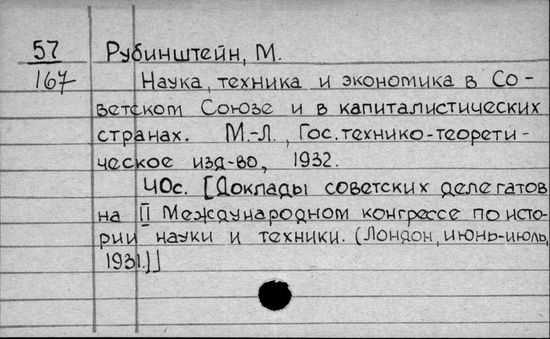 57 Рубинштейн, М.
167 Наука, техника и экономика в Со-
ветском Союзе и в капиталистических
странах. М.-Л., Гос. технико-теорети-
ческое изд-во, 1932.
40с. [Доклады советских делегатов
на II Международном конгрессе по исто-
рии науки и техники. (Лондон, июнь-июль,
1931.)]